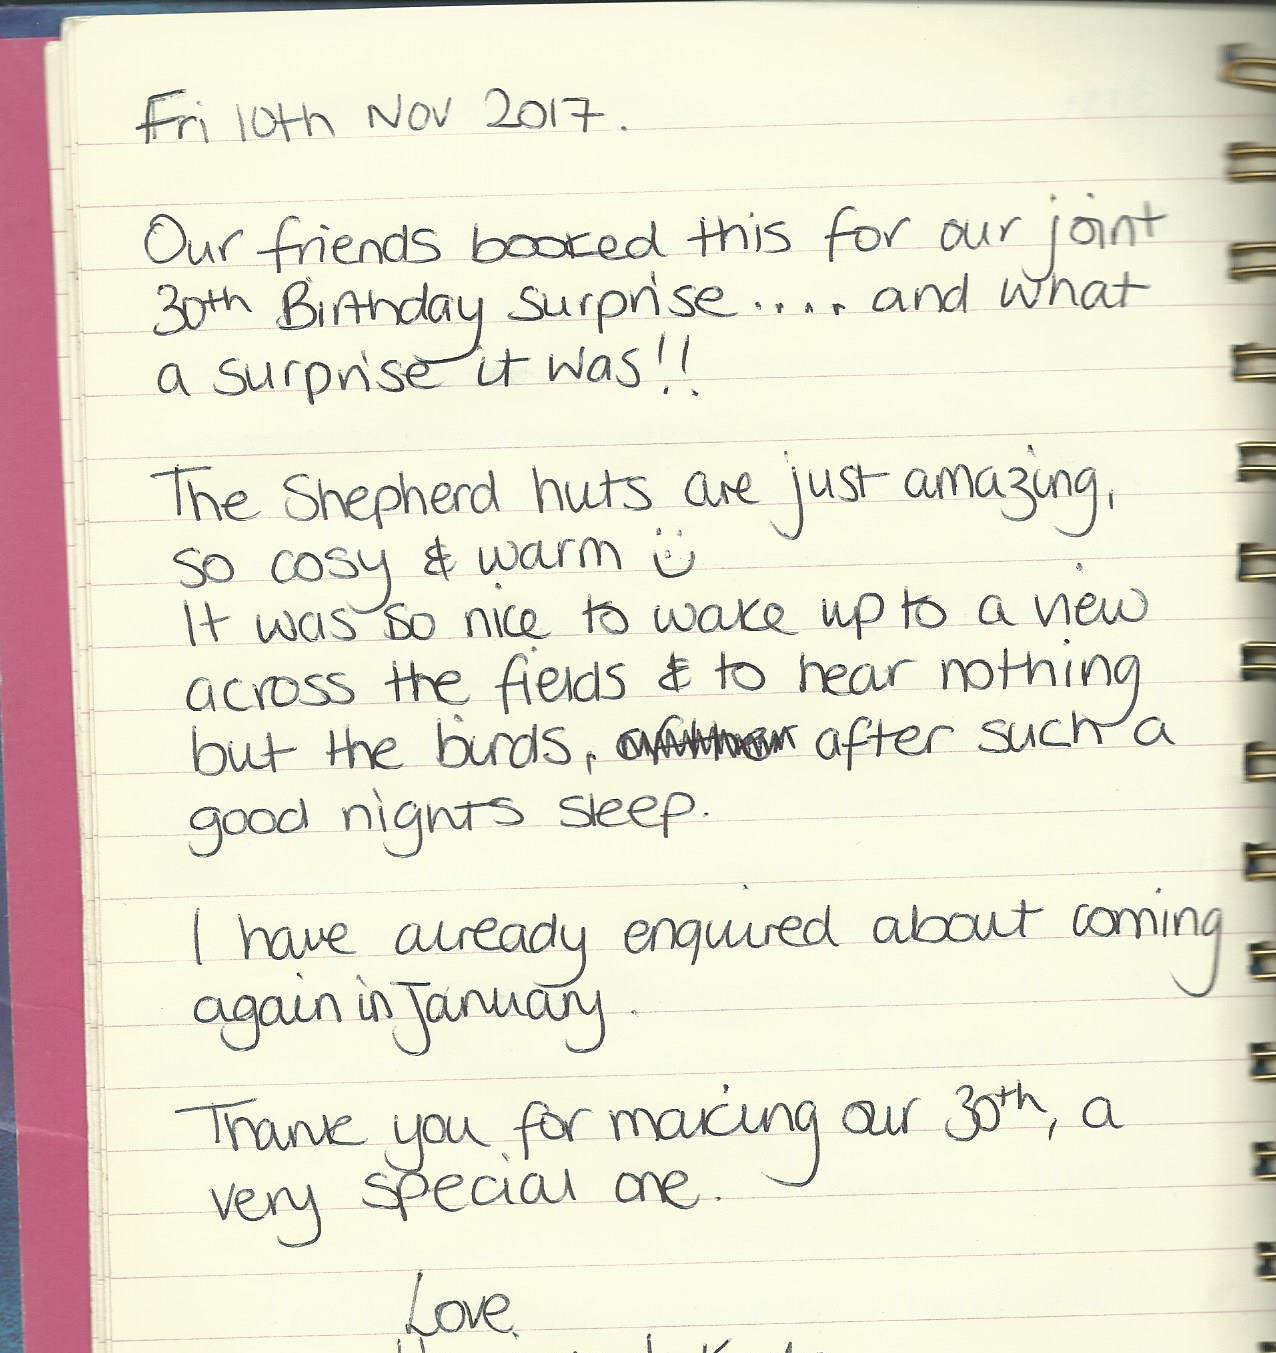 Fri 10th Nov 2017.
Our friends booked this for our joint
30th Birthday surprise..... and what
a surprise it was!!
The Shepherd huts are just amazing,
so cosy & warm
It was so nice to wake up to a view
across the fields & to hear nothing
but the birds, after such a
good nights sleep.
I have already enquired about coming
again in January.
Thank you for making our 30th, a
very special one.
Love